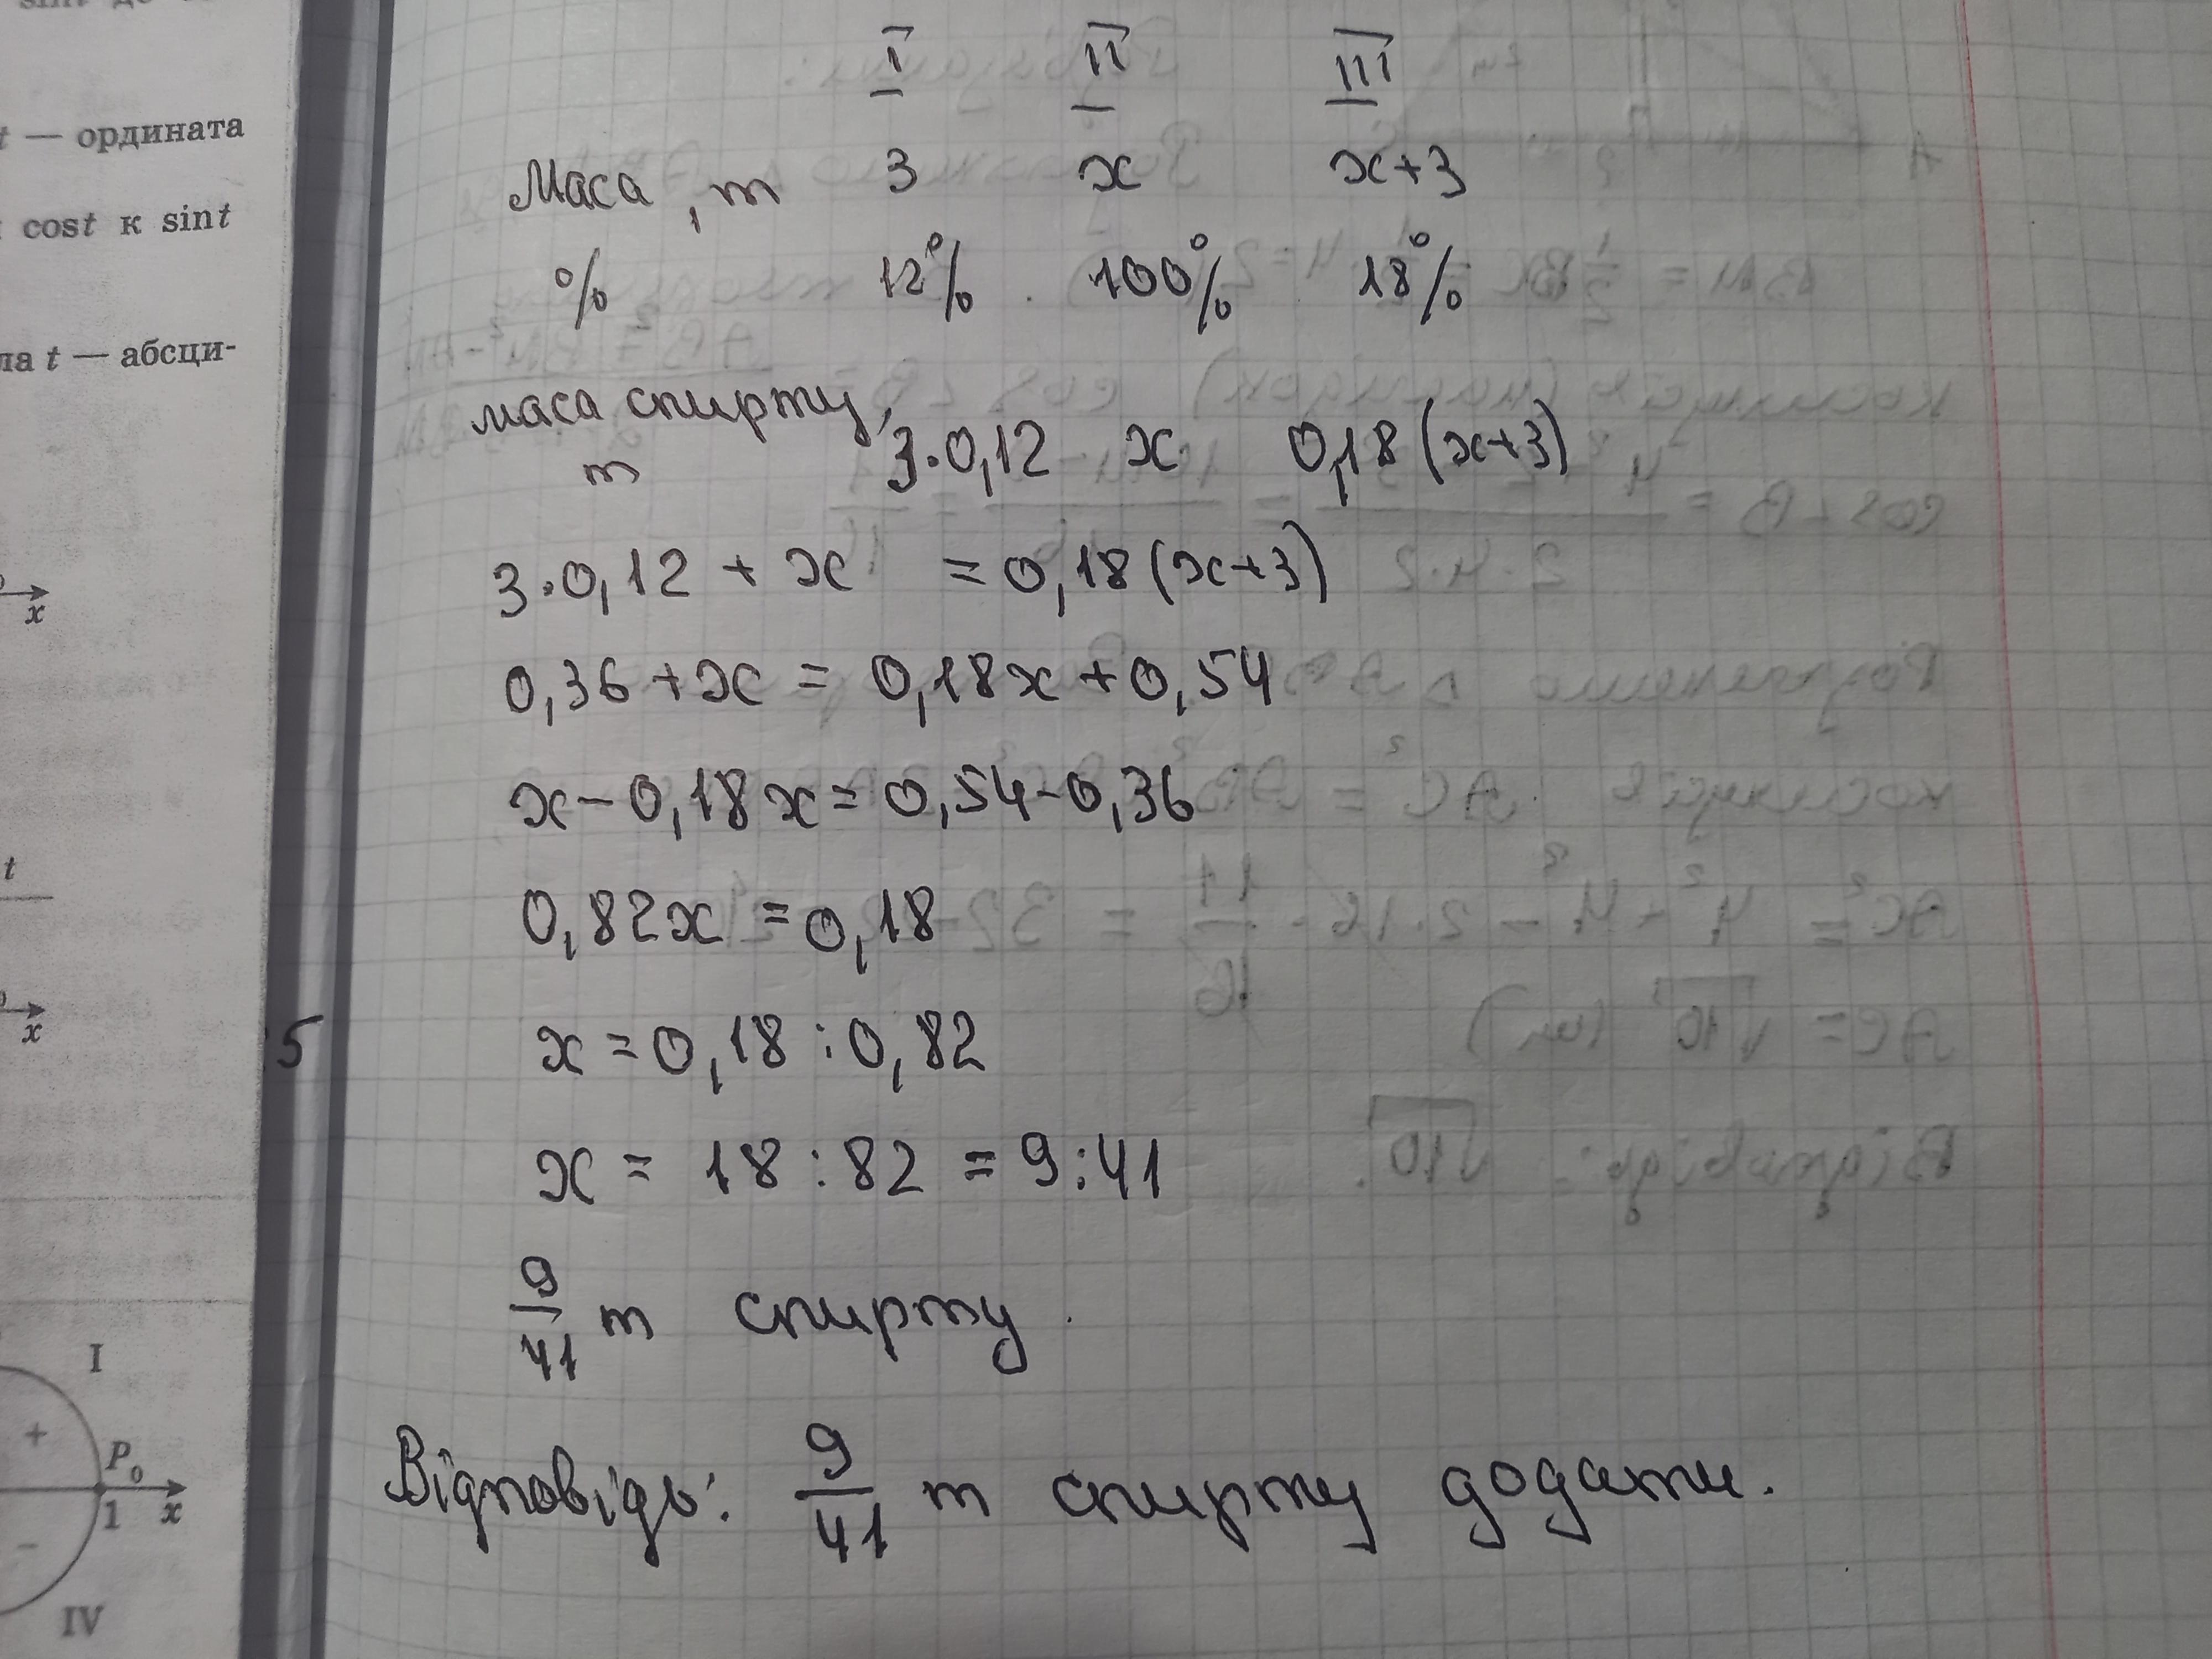 t — ордината
cost к sint
ла t — абсци-
x
t
x
I
+
P₀
1 x
−
IV
:5
I II III
Маса, т 3 x x+3
% 12% 100% 18%
маса спирту,
т 3·0,12 x 0,18(x+3)
3·0,12 + x = 0,18(x+3)
0,36+x = 0,18x+0,54
x−0,18x=0,54-0,36
0,82x =0,18
x=0,18:0,82
x = 18:82 = 9:41
9/41 т спирту.
Відповідь: 9/41 т спирту додати.